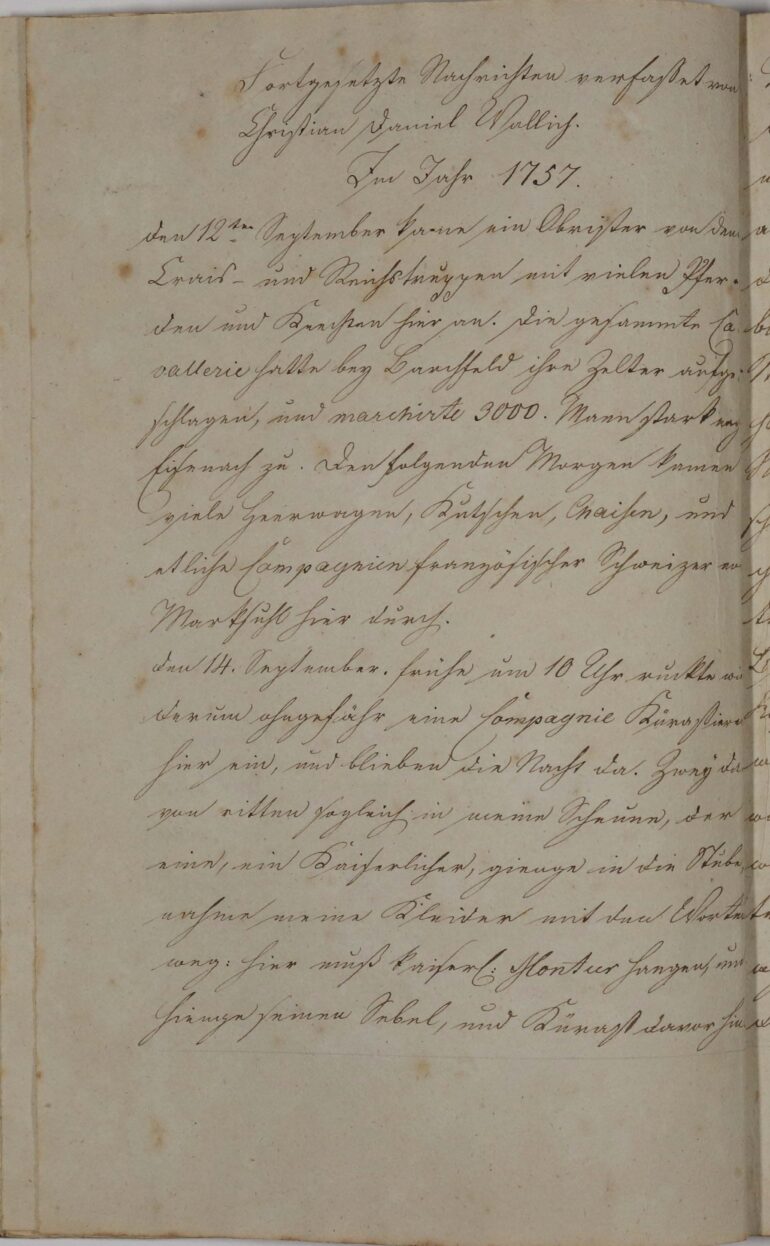 Fortgesetzte Nachrichten verfasset von
Christian Daniel Wallich.
Im Jahr 1757.
den 12ten September kame ein Obrister von dem
Crais- und Reichstruppen mit vielen Pfer-
den und Knechten hier an. die gesammte Ca-
vallerie hatte bey Barchfeld ihre Zelter aufge-
schlagen, und marchirte 3000. Mann stark nach
Eisenach zu. Den folgenden Morgen kamen
viele Heerwagen, Kutschen, Chaisen, und
etliche Compagnien französischer Schweizer
Marksuhl hier durch.
den 14. September. frühe um 10 Uhr ruckte wi
derum ohngefähr eine Compagnie Kürassiere
hier ein, und blieben die Nacht da. Zwey da
von ritten sogleich in meine Scheune, der
eine, ein Kaiserlicher, gienge in die Stube,
nahme meine Kleider mit den Worten
weg: hier muß kaiserl: Montur hangen, und
hienge seinen Sebel, und Kürass davor hin